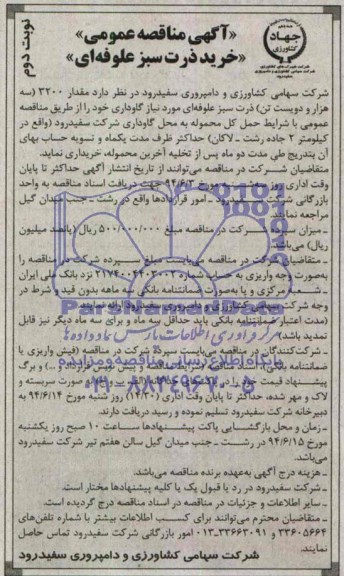 نوبت دوم
«آگهی مناقصه عمومی»
«خرید ذرت سبز علوفه‌ای»
جهاد
کشاورزی
شرکت سهامی کشاورزی و دامپروری سفیدرود در نظر دارد مقدار ۳۲۰۰ (سه
هزار و دویست تن) ذرت سبز علوفه‌ای مورد نیاز گاوداری خود را از طریق مناقصه
عمومی با شرایط حمل کل محموله به محل گاوداری شرکت سفیدرود (واقع در
کیلومتر ۲ جاده رشت ـ لاکان) حداکثر ظرف مدت یکماه و تسویه حساب بهای
آن بتدریج طی مدت دو ماه پس از تخلیه آخرین محموله، خریداری نماید.
متقاضیان شرکت در مناقصه می‌توانند از تاریخ انتشار آگهی حداکثر تا پایان
وقت اداری روز مورخ ۹۴/۶/۳ جهت دریافت اسناد مناقصه به واحد
بازرگانی شرکت سفیدرود ـ امور قراردادها واقع در رشت ـ جنب میدان گیل
مراجعه نمایند.
ـ میزان سپرده شرکت در مناقصه مبلغ ۵۰۰/۰۰۰/۰۰۰ ریال (پانصد میلیون
ریال) می‌باشد.
ـ متقاضیان شرکت در مناقصه می‌بایست مبلغ سپرده شرکت در مناقصه را
بصورت وجه واریزی به حساب شماره ۲۱۷۴۰۰۴۴۰۳۰۰۲ نزد بانک ملی ایران
ـ شعبه مرکزی و یا بصورت ضمانتنامه بانکی سه ماهه بدون قید و شرط در
وجه شرکت سهامی کشاورزی و دامپروری سفیدرود ارائه نمایند.
(مدت اعتبار ضمانتنامه بانکی باید حداقل سه ماه و برای سه ماه دیگر نیز قابل
تمدید باشد)
ـ شرکت‌کنندگان در مناقصه می‌بایست سپرده شرکت در مناقصه (فیش واریزی یا
ضمانتنامه بانکی)، اسناد مناقصه (شرایط مناقصه و پیش نویس قرارداد و ...) و برگ
پیشنهاد قیمت خود را در پاکتهای جداگانه و صورت سربسته و
لاک و مهر شده، حداکثر تا پایان وقت اداری (۱۴/۳۰) روز شنبه مورخ ۹۴/۶/۱۴ به
دبیرخانه شرکت سفیدرود تسلیم نموده و رسید دریافت دارند.
ـ زمان و محل بازگشایی پاکت پیشنهادها ساعت ۱۰ صبح روز یکشنبه
مورخ ۹۴/۶/۱۵ در رشت ـ جنب میدان گیل سالن هفتم تیر شرکت سفیدرود
می‌باشد.
ـ هزینه درج آگهی به‌عهده برنده مناقصه می‌باشد.
ـ شرکت سفیدرود در رد یا قبول یک یا کلیه پیشنهادها مختار است.
ـ سایر اطلاعات و جزئیات در مناقصه در اسناد مناقصه درج گردیده است.
ـ متقاضیان محترم می‌توانند برای کسب اطلاعات بیشتر با شماره تلفن‌های
۳۳۶۰۵۶۶۴ و ۳۳۶۶۳۰۹۱-۰۱۳ امور بازرگانی شرکت سفیدرود تماس حاصل
نمایند.
شرکت سهامی کشاورزی و دامپروری سفیدرود
ParsNamadData
مرکز فرآوری اطلاعات پارس نماد داده‌ها
پایگاه اطلاع رسانی مناقصه و مزایده
۰۲۱-۸۸۳۴۹۶۷۰-۵